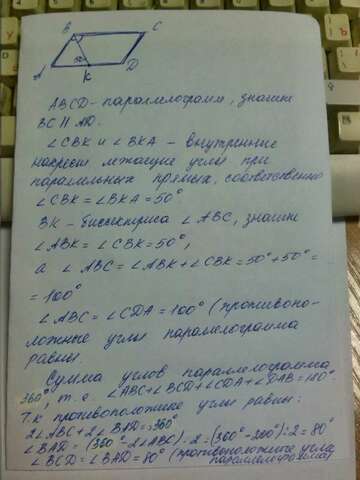 B C
50°
A K D
ABCD - параллелограмм, значит
BC || AD.
∠CBK и ∠BKA - внутренние
накрест лежащие углы при
параллельных прямых, соответственно
∠CBK = ∠BKA = 50°
BK - биссектриса ∠ABC, значит
∠ABK = ∠CBK = 50°,
а ∠ABC = ∠ABK + ∠CBK = 50° + 50° =
= 100°
∠ABC = ∠CDA = 100° (противопо-
ложные углы параллелограмма
равны.
Сумма углов параллелограмма
360°, т.е. ∠ABC + ∠BCD + ∠CDA + ∠DAB = 180°
Т.к противоположные углы равны:
2∠ABC + 2∠BAD = 360°
∠BAD = (360° - 2∠ABC) : 2 = (360° - 200°) : 2 = 80°
∠BCD = ∠BAD = 80° (противоположные углы
параллелограмма)